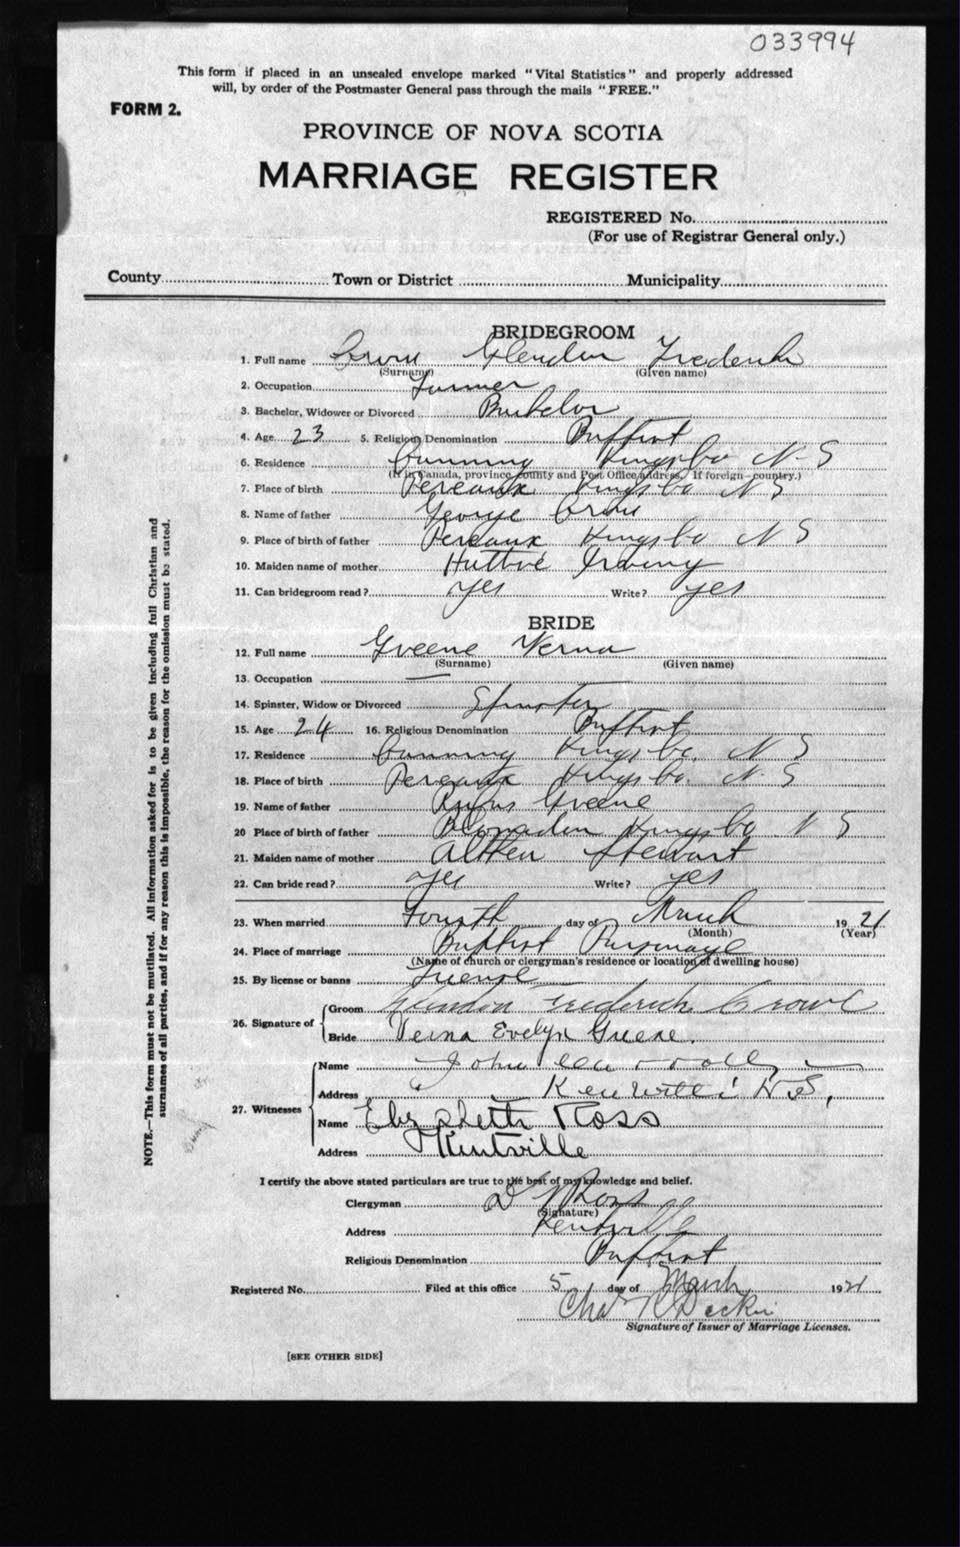 033994
This form if placed in an unsealed envelope marked "Vital Statistics" and properly addressed
will, by order of the Postmaster General pass through the mails "FREE."
FORM 2.
PROVINCE OF NOVA SCOTIA
MARRIAGE REGISTER
REGISTERED No.
(For use of Registrar General only.)
County Town or District Municipality
BRIDEGROOM
1. Full name Glendon Frederick
(Surname) (Given name)
2. Occupation Farmer
3. Bachelor, Widower or Divorced Bachelor
4. Age 23 5. Religious Denomination Baptist
6. Residence Canning Kings Co N S
(If in Canada, province, county and Post Office address. If foreign—country.)
7. Place of birth Pereaux Kings Co N S
8. Name of father George
9. Place of birth of father Pereaux Kings Co N S
10. Maiden name of mother
11. Can bridegroom read? yes Write? yes
BRIDE
12. Full name Greene Verna
(Surname) (Given name)
13. Occupation —
14. Spinster, Widow or Divorced Spinster
15. Age 24 16. Religious Denomination Baptist
17. Residence Canning Kings Co. N S
18. Place of birth Pereaux Kings Co. N. S
19. Name of father Rufus Greene
20 Place of birth of father Blomidon Kings Co N S
21. Maiden name of mother Stewart
22. Can bride read? yes Write? yes
23. When married Fourth day of March 1921
(Month) (Year)
24. Place of marriage Baptist Parsonage
(Name of church or clergyman's residence or location of dwelling house)
25. By license or banns
26. Signature of Groom Glendon Frederick Crowe
Bride Verna Evelyn Greene.
27. Witnesses Name John
Address Kentville N.S.
Name Elizabeth Ross
Address Kentville
I certify the above stated particulars are true to the best of my knowledge and belief.
Clergyman Ross
(Signature)
Address Kentville
Religious Denomination Baptist
Registered No. Filed at this office 5 day of March 1921
Chas R Deckie
Signature of Issuer of Marriage Licenses.
[SEE OTHER SIDE]
NOTE.—This form must not be mutilated. All information asked for is to be given including full Christian and
surnames of all parties, and if for any reason this is impossible, the reason for the omission must be stated.